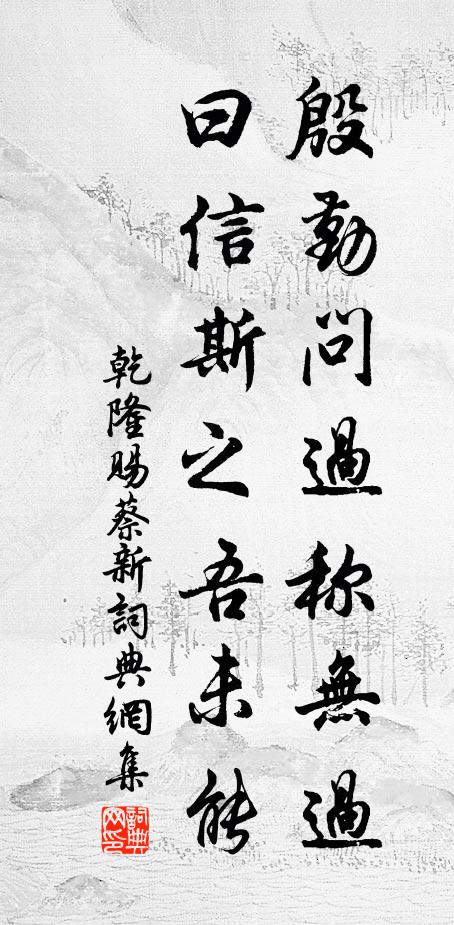 殷勤問過称無過
曰信斯之吾未能
乾隆賜蔡新詞典網集
詞典
网印